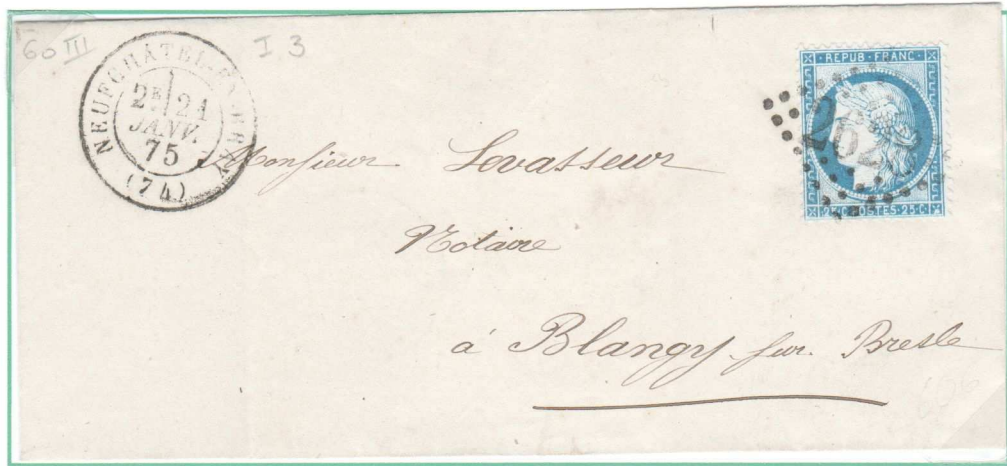 60 III
I 3
NEUFCHÂTEL-EN-BRAY
2E 21
JANV.
75
(74)
REPUB · FRANC ·
25 C POSTES 25 C
Monsieur Levasseur
Notaire
à Blangy sur Bresle